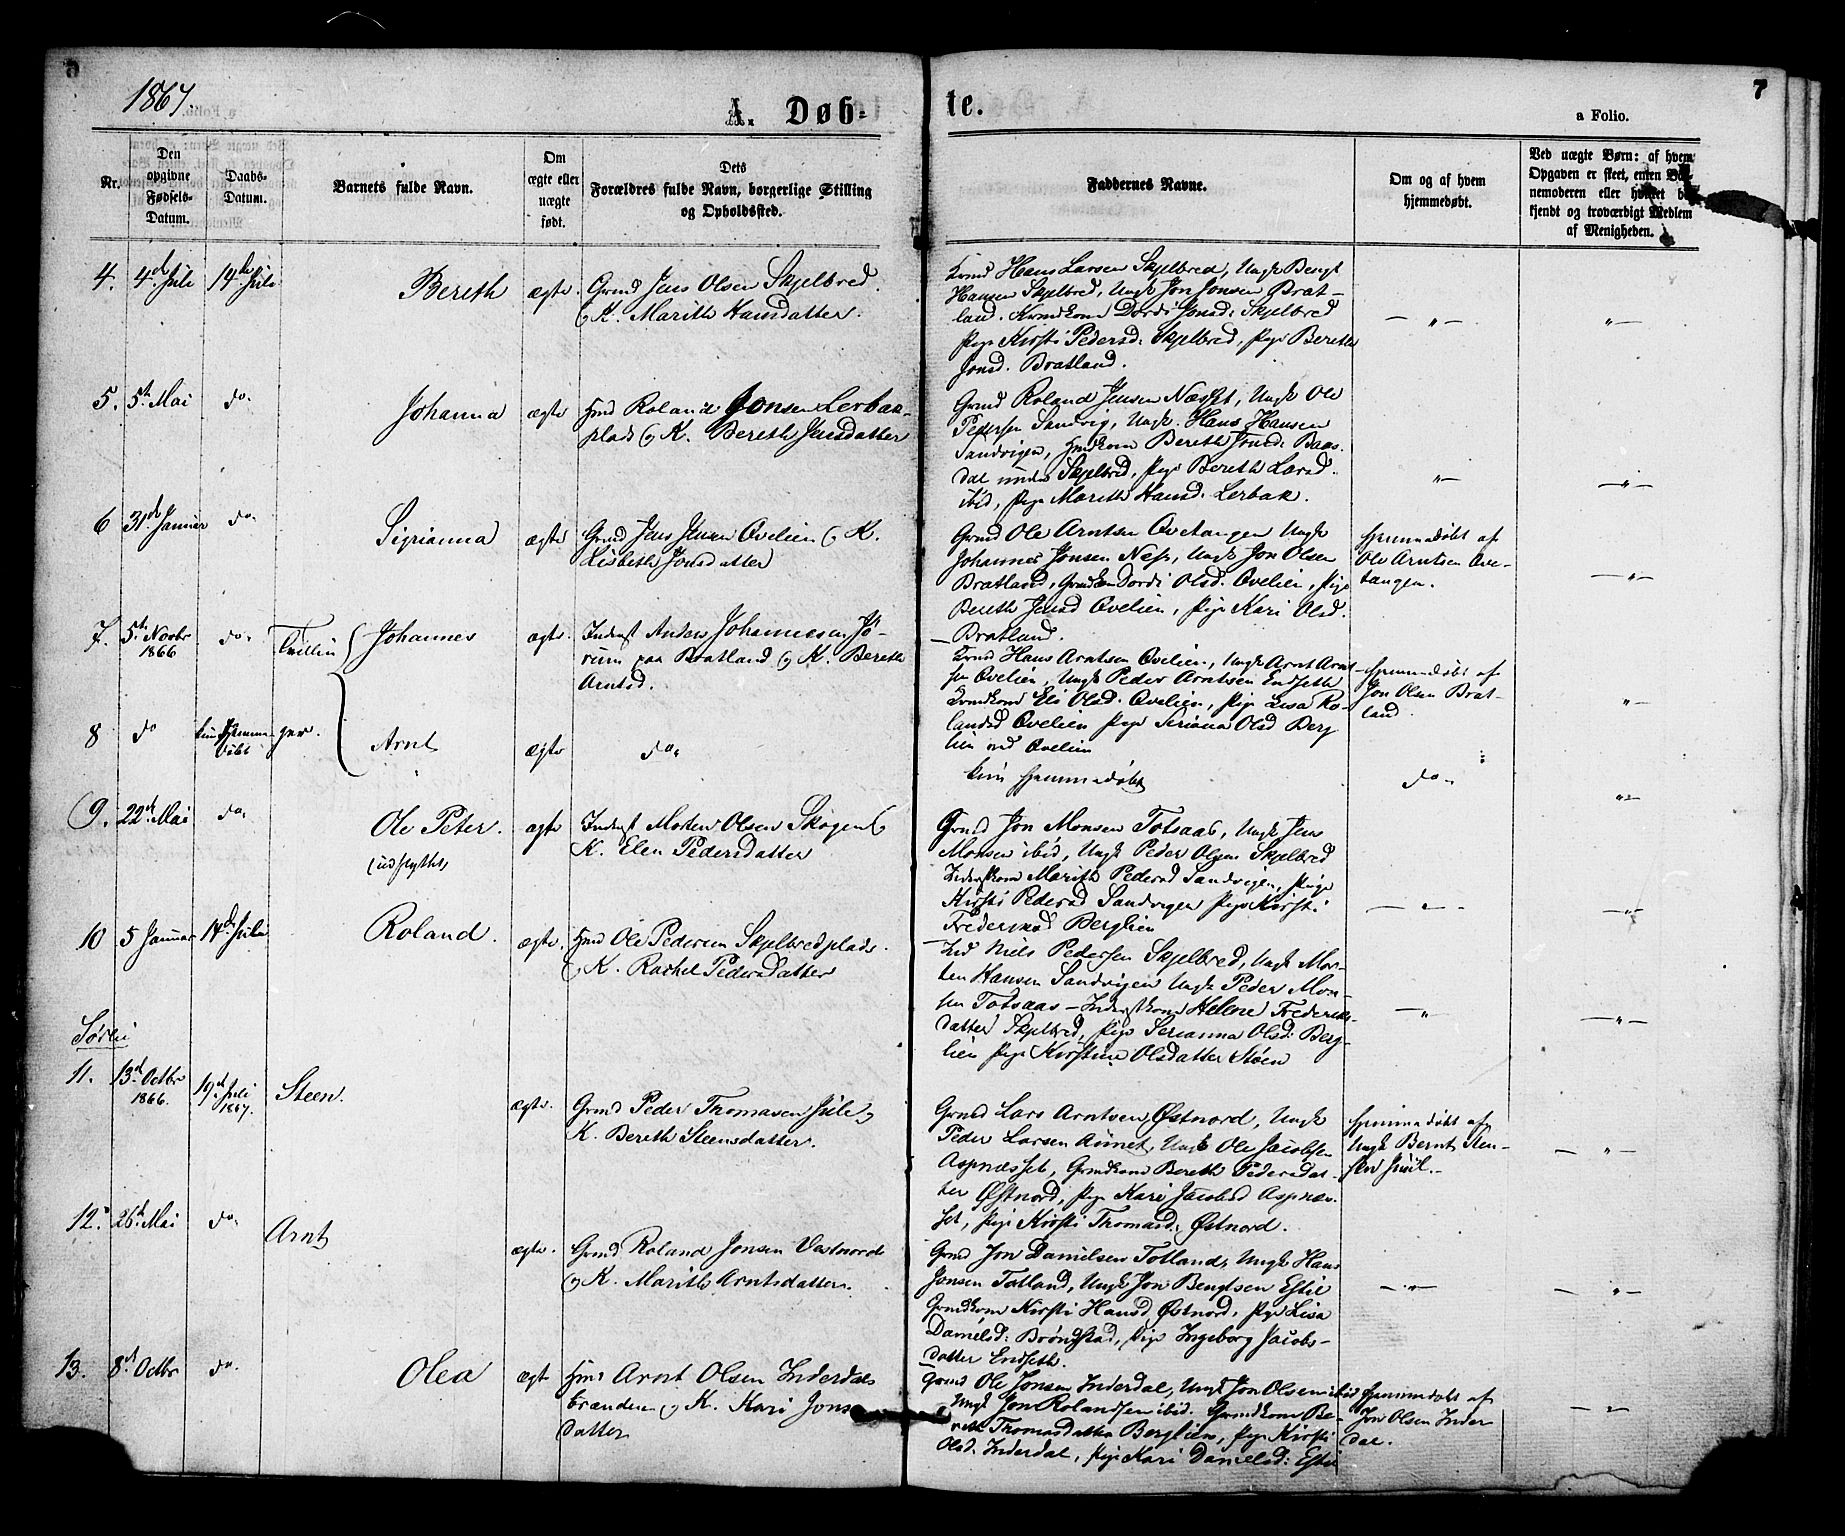 1867.
A. Døb-
te.
7
a Folio.
Nr.
Den opgivne Fødsels-Datum.
Daabs-Datum.
Barnets fulde Navn.
Om ægte eller uægte født.
Dets
Forældres fulde Navn, borgerlige Stilling
og Opholdssted.
Faddernes Navne.
Om og af hvem
hjemmedøbt.
Ved uægte Børn: af hvem
Opgaven er skeet, enten
nemoderen eller hvilket
kjendt og troværdigt Medlem
af Menigheden.
4. 4de Juli 14de Juli Bereth ægte. Grmd Jens Olsen Skjelbred.
K. Marith Hansdatter.
Grmd Hans Larsen Skjelbred, Ungk Bengt
Hansen Skjelbred, Ungk Jon Jonsen Brat-
land. Grmdkone Dordi Jonsd: Skjelbred
Pige Kirsti Pedersd: Skjelbred, Pige Bereth
Jonsd. Bratland.
5. 5te Mai do. Johanna ægte Hmd Roland Jonsen Lerbak-
plads & K. Bereth Jensdatter
Grmd Roland Jensen Næss, Ungk Ole
Pedersen Sandvig, Ungk. Hans Hansen
Sandvigen, Hmdkone Bereth Jonsd:
dal under Skjelbred, Pige Bereth Larsd.
ibid, Pige Marith Hansd. Lerbak.
6 31de Januar do. Sirianna ægte Grmd Jens Jensen Qvelien & K.
Lisbeth Jonsdatter
Grmd Ole Arntsen Qvetangen Ungk
Johannes Jonsen Næss, Ungk Jon Olsen
Bratland, Grmdkone Dordi Olsd. Qvelien, Pige
Bereth Jensd Qvelien, Pige Kari Olsd.
Bratland.
Hjemmedøbt af
Ole Arntsen Qve-
tangen.
7. 5te Novbr 1866 do. Tvillin Johannes ægte. Inderst Anders Johannesen Jø-
rum paa Bratland & K. Bereth
Arntsd.
Grmd Hans Arntsen Qvelien, Ungk Arnt Arnt-
sen Qvelien, Ungk Peder Arntsen Endseth
Grmdkone Eli Olsd. Qvelien, Pige Lisa Ro-
landsd Qvelien Pige Seriana Olsd Berg
lien ved Qvelien
Hjemmedøbt af
Jon Olsen Brat-
land.
8 do kun Hjemme-
døbt ger. Arnt ægte do.
kun hjemmedøbt
do.
9. 22de Mai do. Ole Peter. ægte Inderst Morten Olsen Skogen &
K. Elen Pedersdatter
(udflyttet)
Grmd Jon Monsen Totsaas, Ungk Jens
Monsen ibid, Ungk Peder Olsen Skjelbred
Inderstkone Marith Pedersd Sandvigen, Pige
Kirsti Pedersd Sandvigen Pige Kirsti
Frederiksd Berglien
10 5 Januar 14de Juli Roland. ægte. Hmd Ole Pedersen Skjelbredplads.
& K. Rachel Pedersdatter
Ind Niels Pedersen Skjelbred, Ungk Mor-
ten Hansen Sandvigen Ungk Peder Mon-
sen Totsaas - Inderstkone Helene Frederiks-
datter Skjelbred, Pige Serianna Olsd: Berg-
lien Pige Kirstine Olsdatter Støen
Sørlie
11. 13de Octbr 1866. 19de Juli 1867. Steen. ægte. Grmd Peder Thomasen Jule &
K. Bereth Steensdatter.
Grmd Lars Arntsen Østnord, Ungk
Peder Larsen Aunet, Ungk Ole Jacobsen
Aspnæsset, Grmdkone Bereth Pedersdat-
ter Østnord, Pige Kari Jacobsd Aspnæs-
set, Pige Kirsti Thomasd: Østnord.
Hjemmedøbt af
Ungk Bernt Sten-
sen Juul.
12. 26de Mai do. Arnt ægte. Grmd Roland Jonsen Vestnord
& K. Marith Arntsdatter.
Grmd Jon Danielsen Totland, Ungk Hans
Jonsen Totland, Ungk Jon Bengtsen Estil
Grmdkone Kirsti Hansd Østnord, Pige Lisa
Danielsd: Brøndstad, Pige Ingeborg Jacobs-
datter Endseth.
13. 8de Octbr do. Olea ægte Hmd Arnt Olsen Inderdals
brænden & K. Kari Jons
datter
Grmd Ole Jonsen Inderdal, Ungk Jon Olsen ibid
Ungk Jon Rolandsen ibid. Grmdkone Be-
reth Thomasdatter Berglien, Pige Kirsti
Olsd. Inderdal, Pige Kari Danielsd: Estil
Hjemmedøbt af
Jon Olsen Inder
dal.